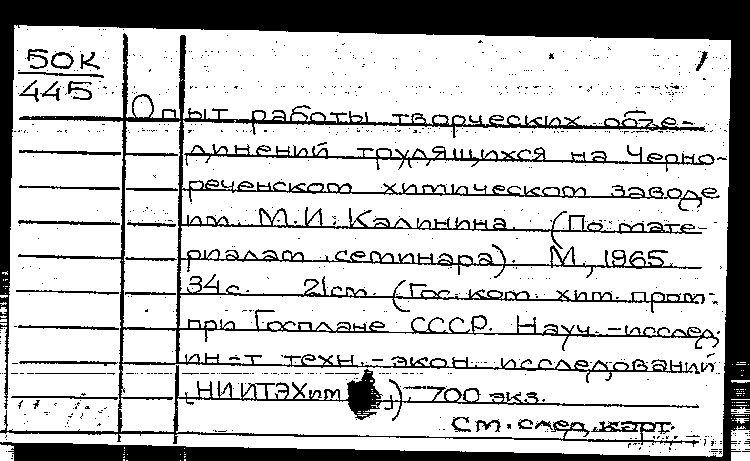 50К
445
Опыт работы творческих объе-
динений трудящихся на Черно-
реченском химическом заводе
им. М.И. Калинина. (По мате-
риалам семинара). М., 1965.
34с. 21см. (Гос. ком. хим. пром.
при Госплане СССР. Науч.-исслед.
ин-т техн.-экон. исследований
[НИИТЭХим]). 700 экз.
См. след. карт.